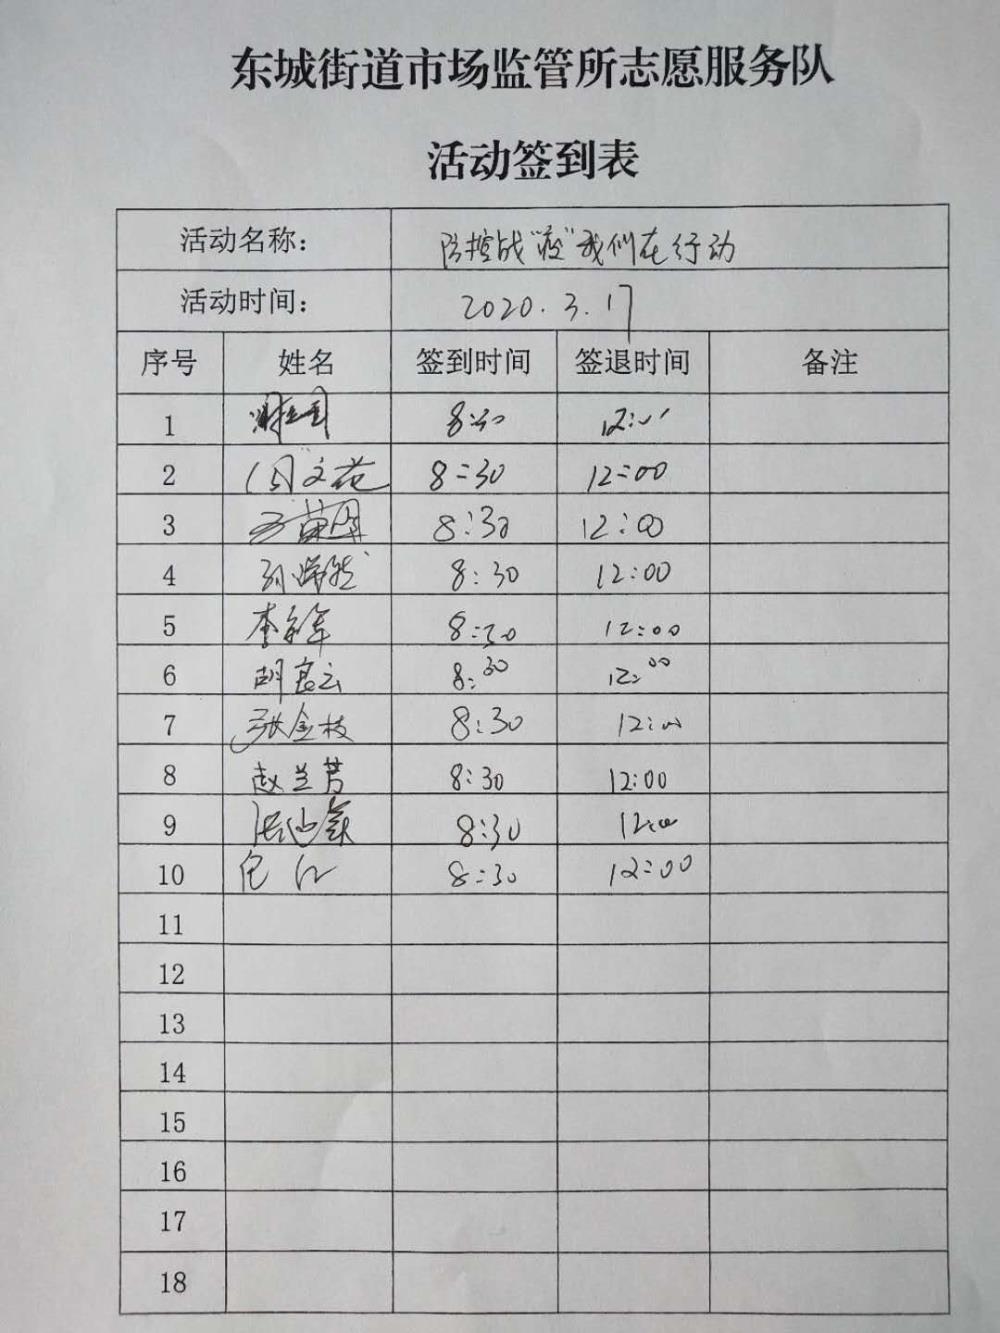 东城街道市场监管所志愿服务队
活动签到表
活动名称： 防控战“疫”我们在行动
活动时间： 2020.3.17
序号 姓名 签到时间 签退时间 备注
1 8:30 12:00
2 周文花 8:30 12:00
3 8:30 12:00
4 8:30 12:00
5 8:30 12:00
6 胡彦云 8:30 12:00
7 张金枝 8:30 12:00
8 赵兰芳 8:30 12:00
9 8:30 12:00
10 8:30 12:00
11
12
13
14
15
16
17
18